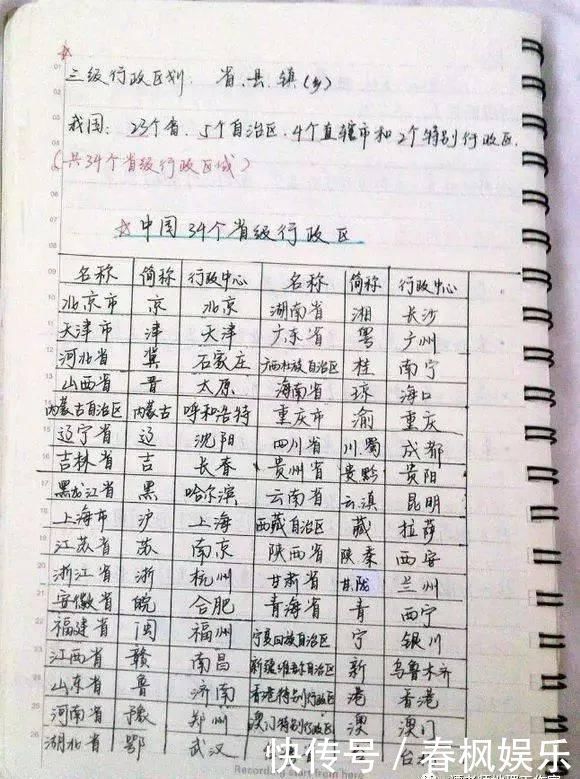 三级行政区划. 省.县.镇(乡)
我国: 23个省、5个自治区、4个直辖市和2个特别行政区.
(共34个省级行政区域)
☆中国34个省级行政区
名称 简称 行政中心 名称 简称 行政中心
北京市 京 北京 湖南省 湘 长沙
天津市 津 天津 广东省 粤 广州
河北省 冀 石家庄 广西壮族自治区 桂 南宁
山西省 晋 太原 海南省 琼 海口
内蒙古自治区 内蒙古 呼和浩特 重庆市 渝 重庆
辽宁省 辽 沈阳 四川省 川.蜀 成都
吉林省 吉 长春 贵州省 贵黔 贵阳
黑龙江省 黑 哈尔滨 云南省 云.滇 昆明
上海市 沪 上海 西藏自治区 藏 拉萨
江苏省 苏 南京 陕西省 陕.秦 西安
浙江省 浙 杭州 甘肃省 甘.陇 兰州
安徽省 皖 合肥 青海省 青 西宁
福建省 闽 福州 宁夏回族自治区 宁 银川
江西省 赣 南昌 新疆维吾尔自治区 新 乌鲁木齐
山东省 鲁 济南 香港特别行政区 港 香港
河南省 豫 郑州 澳门特别行政区 澳 澳门
湖北省 鄂 武汉
快传号 / 春枫娱乐
Recording start from here